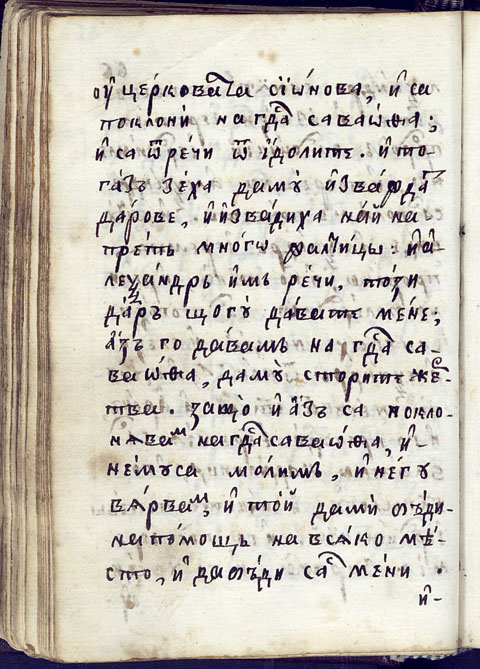 оу҆ це́рковата сїѡ́нова, и҆ са
поклони̏ на гдⷭ҇а саваѡ́ѳа;
и҆ са ѿре́чи ѿ и҆́долите. и҆ то-
га́зъ зе́ха даму̀ и҆зва́рдатъ
да́рове, и҆ и҆зва́диха на́й на
пре́тъ мно́гѡ жалти́цы и҆ а҆-
леѯа́ндръ и҆̀мъ ре́чи, то́зи
да́ръ щогу̀ да́вате ме́не;
а҆́зъ го да́вамъ на гдⷭ҇а са-
ваѡ́ѳа, даму̀ сто́рите же́-
тва. защо̀ и҆ а҆́зъ са покло-
нѧ́вамъ на гдⷭ҇а саваѡ́ѳа, и҆-
не́муса мо́лимъ, и҆ не́гу
вѧ́рвамъ, и҆ то́й дамѝ бъ́ди-
на по́мощъ на всѧ́ко мѣ́-
сто, и҆ да бъ́ди сасъ ме́ни.
и҆-